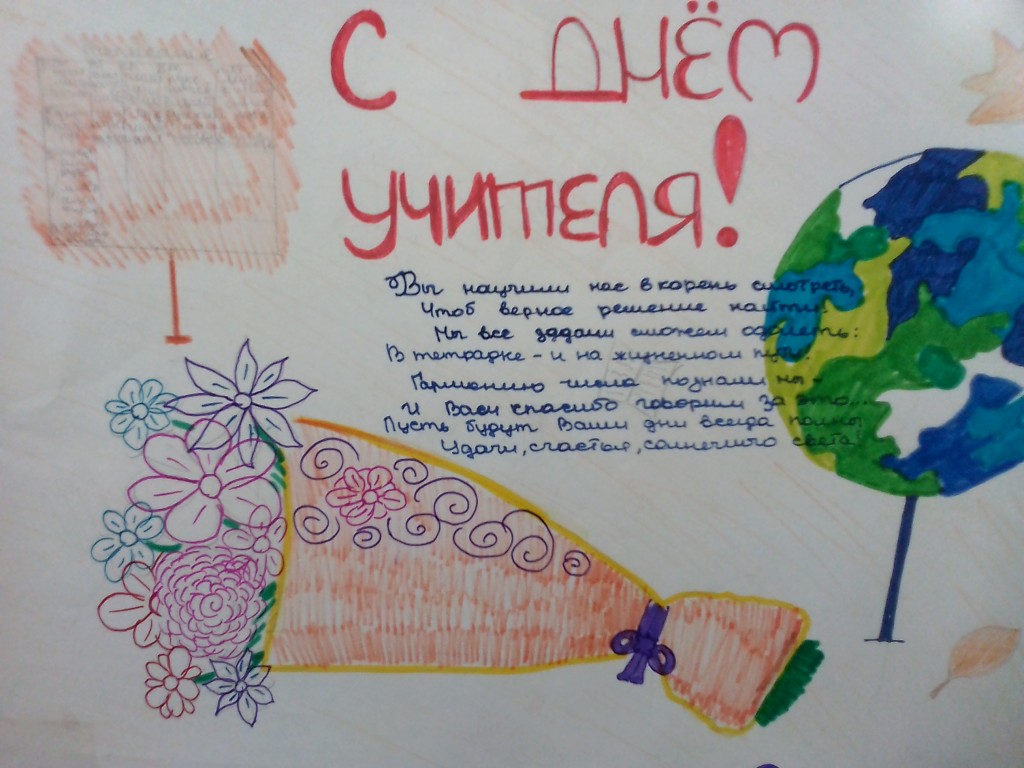 С ДНЁМ
УЧИТЕЛЯ!
Вы научили нас в корень смотреть,
Чтоб верное решение найти.
Мы все задачи сможем одолеть:
В тетрадке - и на жизненном пути.
Гармонию числа познали мы -
И Вам спасибо говорим за это...
Пусть будут Ваши дни всегда полны
Удачи, счастья, солнечного света!